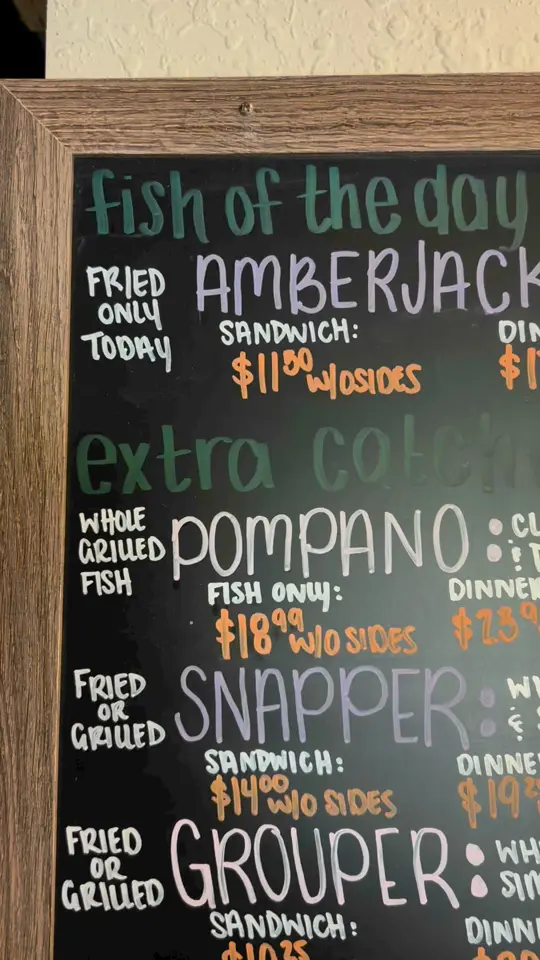 fish of the day
FRIED ONLY TODAY
AMBERJACK
SANDWICH:
$11⁵⁰ W/O SIDES
extra catch
WHOLE GRILLED FISH
POMPANO:
FISH ONLY: DINNER
$18⁹⁹ W/O SIDES $23⁹
FRIED OR GRILLED
SNAPPER:
&
SANDWICH: DINNE
$14⁰⁰ W/O SIDES
FRIED OR GRILLED
GROUPER:
SANDWICH: